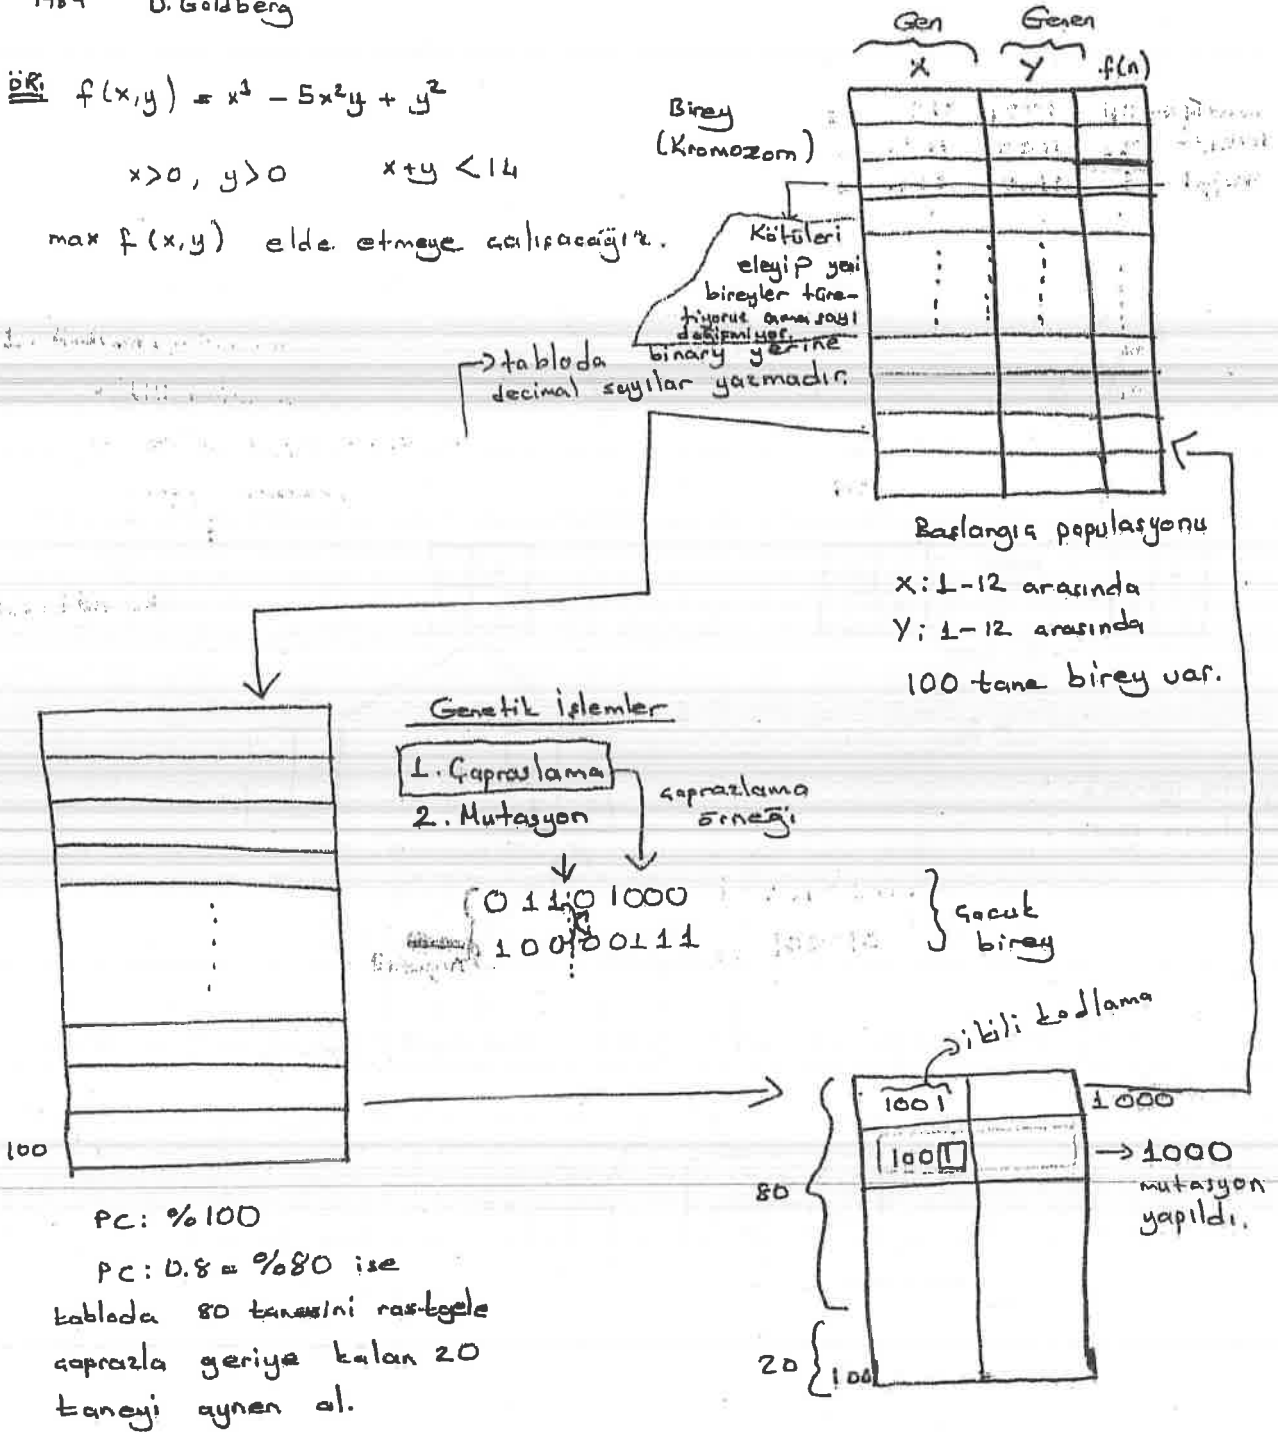 D. Goldberg
ÖR: f(x,y) = x¹ - 5x²y + y²
x>0, y>0 x+y <14
max f(x,y) elde etmeye çalışacağız.
Gen Genen
X Y f(n)
Birey
(Kromozom)
Kötüleri
eleyip yeni
bireyler türe-
tiyoruz ama sayı
değişmiyor.
→tabloda binary yerine
decimal sayılar yazmadır.
Başlangıç populasyonu
X: 1-12 arasında
Y: 1-12 arasında
100 tane birey var.
Genetik İşlemler
1. Çaprazlama
2. Mutasyon
çaprazlama
örneği
0 1 1 0 1 0 0 0
1 0 0 0 0 1 1 1
çocuk
birey
ikili kodlama
1001
1000
1001
→ 1000
mutasyon
yapıldı.
80
20
100
100
PC: %100
PC: 0.8 = %80 ise
tabloda 80 tanesini rastgele
çaprazla geriye kalan 20
taneyi aynen al.